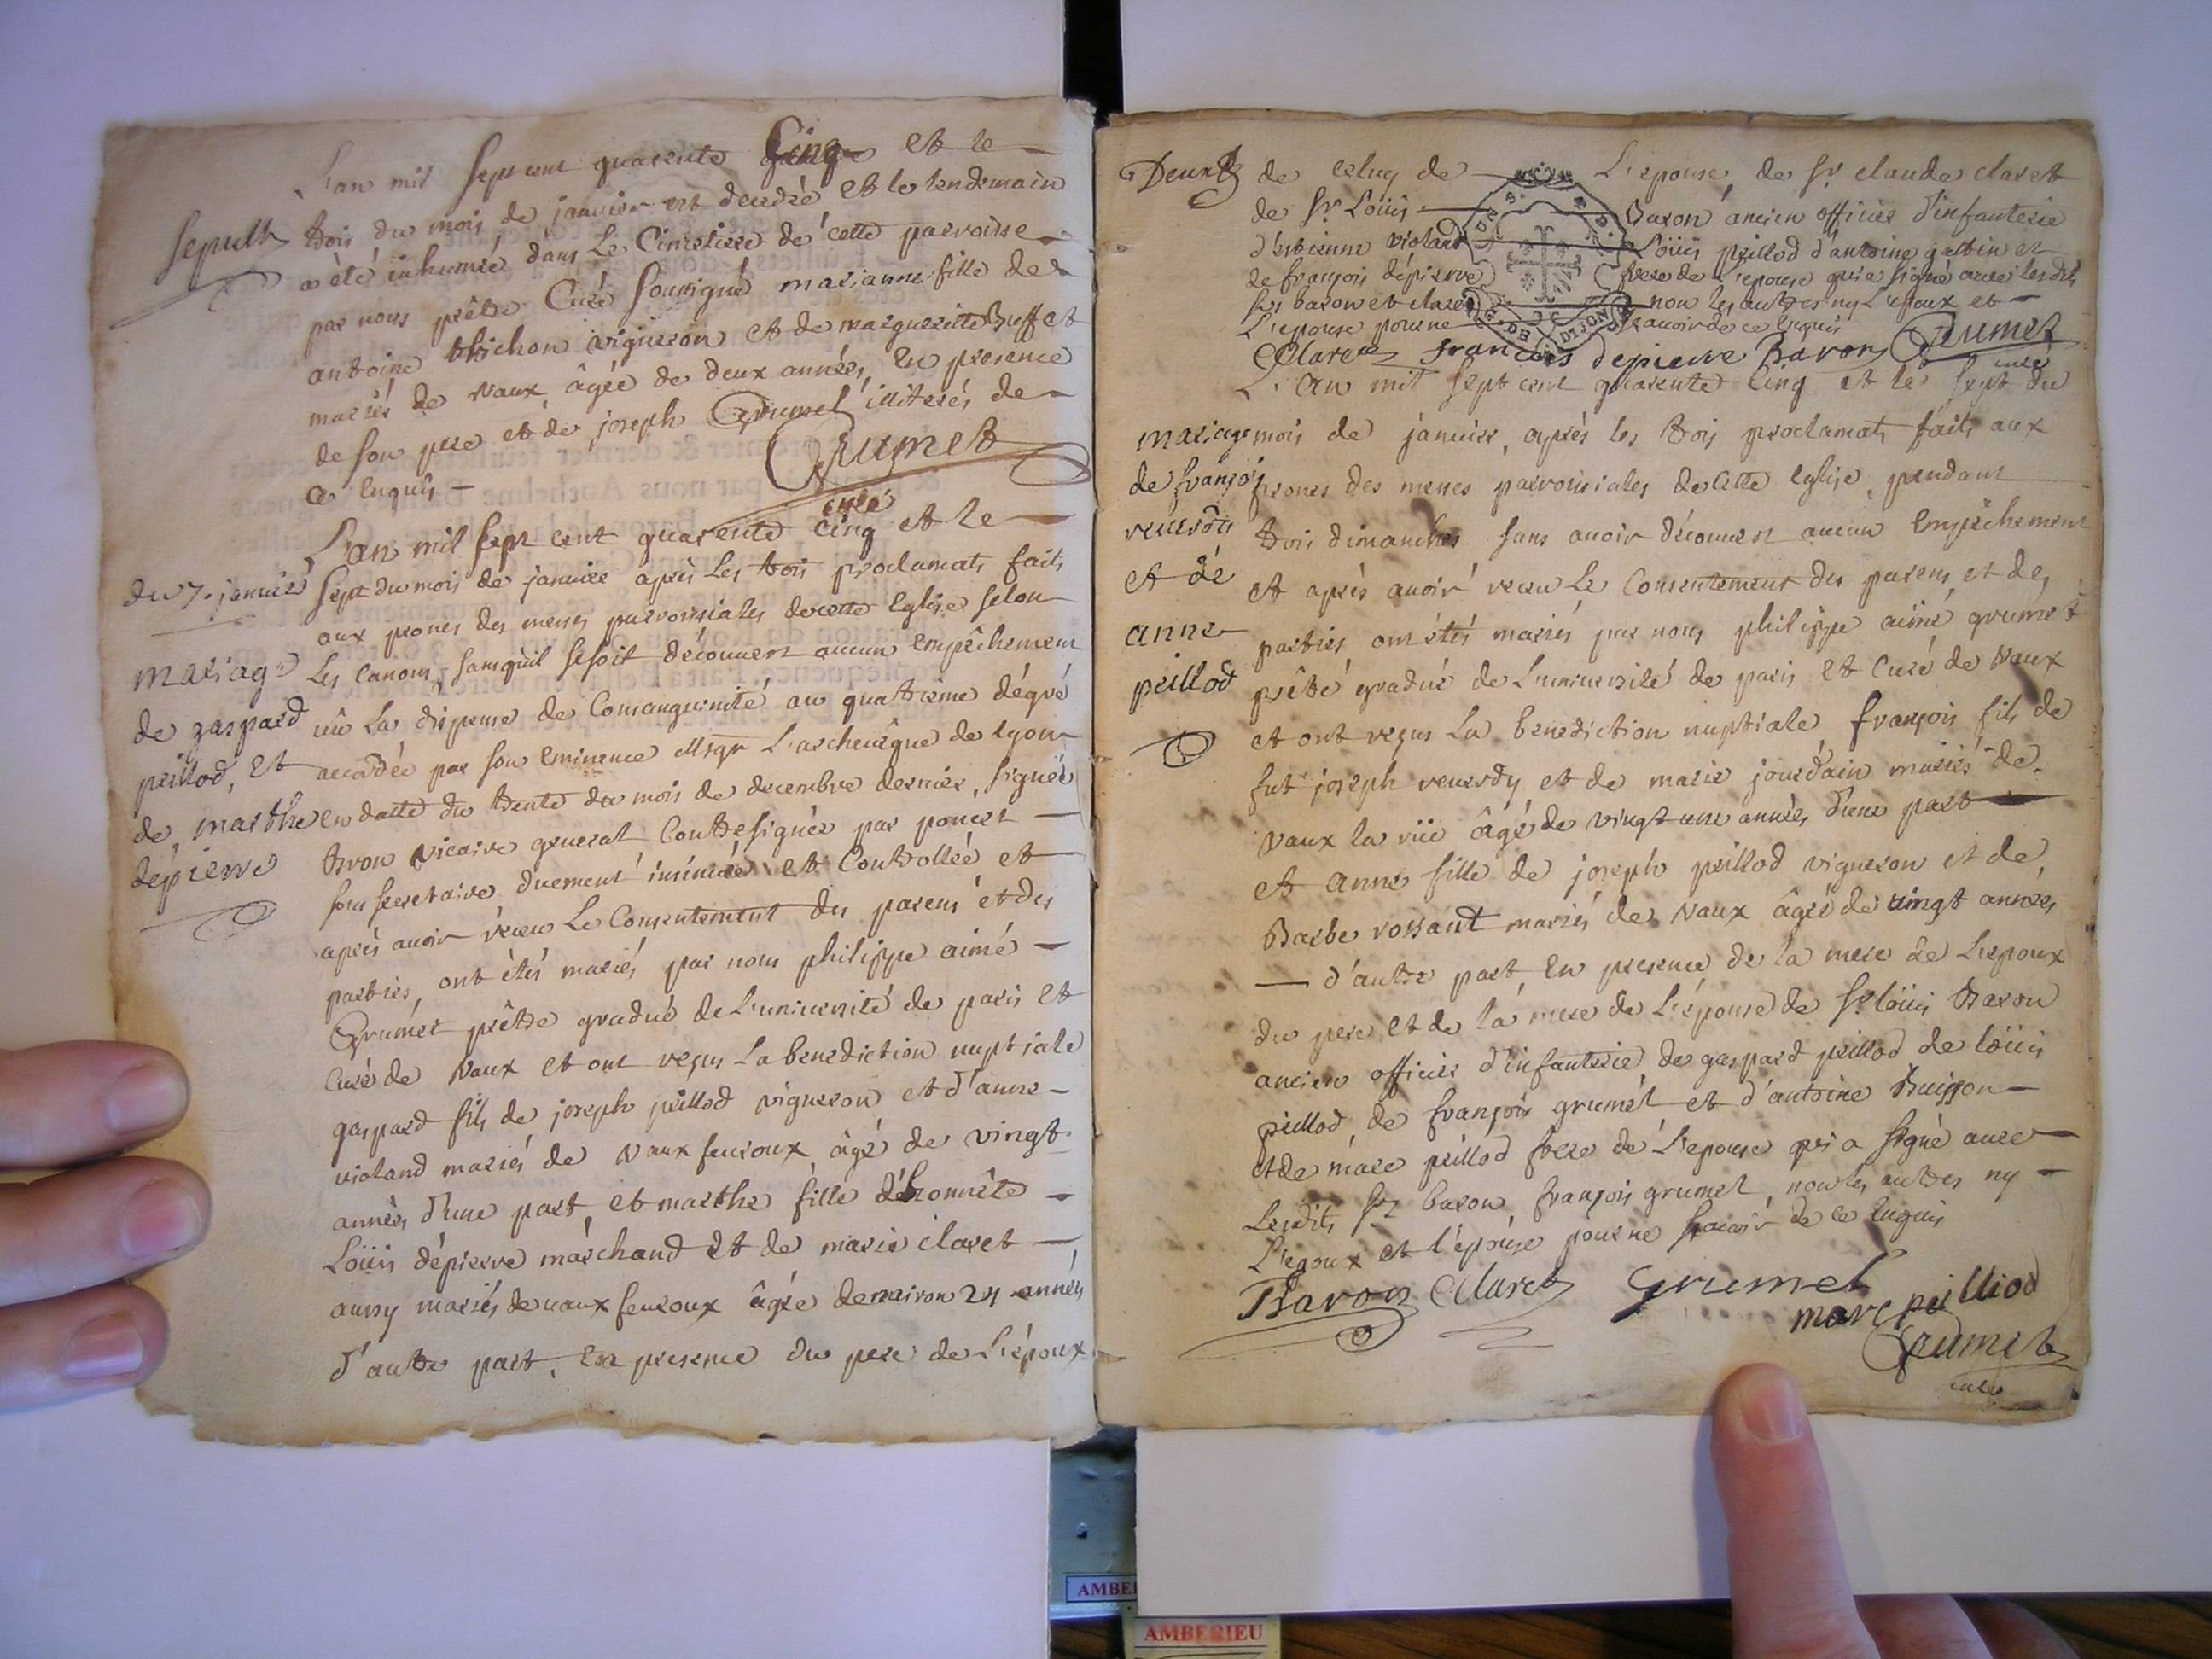 L'an mil sept cent quarente Cinq et le
sepult trois du mois de janvier est decedée et le lendemain
a été inhumée dans Le Cimetiere de cette parroisse
par nous prêtre Curé soussigné marianne fille de
antoine vigneron et de marguerite Buffet
mariés de vaux âgée de deux années, en presence
de son pere et de joseph Grumet illiterés de
ce enquis
Grumet
curé
L'an mil sept cent quarente cinq et le
du 7. janvier sept du mois de janvier après les trois proclamats faits
aux prones des messes parroissiales de cette Eglise selon
mariage Les Canons, sans qu'il se soit découvert aucun empêchement
de gaspard vû La dispense de Consanguinité au quatrieme dégré
peillod, et accordée par son Eminence Msgr L'archevêque de lyon
de, marthe en datte du trente du mois de decembre dernier, signée
dépierre vicaire general Contresignée par poncet
sous secretaire, duement insinuée et Controllée et
après avoir receu Le Consentement des parens et des
parties, ont étés mariés par nous philippe aimé
Grumet prêtre gradué de L'université de paris et
Curé de vaux et ont reçus La benediction nuptiale
gaspard fils de joseph peillod vigneron et d'anne
violand mariés de vaux fevroux âgé de vingt
années d'une part, et marthe fille d'honnête
Loüis dépierre marchand et de marie claret
aussy mariés de vaux fevroux âgée denviron 24 années
d'autre part, En presence du pere de L'époux
Deux de celuy de L'epouse, de Sr claude claret
de Sr Loüis Baron ancien officier d'infanterie
d'Estienne violand Loüis peillod d'antoine et
de françois dépierre frere de L'epouse qui a signé avec lesdits
Srs baron et claret non les autres ny L'epoux et
L'epouse pour ne sçavoir de ce enquis
Claret françois depierre Baron Grumet
curé
L'an mil sept cent quarente Cinq et le sept du
mariage mois de janvier, après les trois proclamats faits aux
de françois prones des messes parroissiales de cette Eglise, pendant
trois dimanches sans avoir découvert aucun Empêchement
et de et après avoir receu Le Consentement des parens et des
anne parties ont étés mariés par nous philippe aimé grumet
peillod prêtre gradué de L'université de paris et Curé de vaux
et ont reçus La benediction nuptiale françois fils de
fut joseph et de marie jourdain mariés de
vaux la rüe âgé de vingt une années d'une part
et anne fille de joseph peillod vigneron et de
Barbe rossant mariés de vaux âgée de vingt années
d'autre part, En presence de la mere de L'epoux
du pere et de la mere de L'épouse de Sr loüis Baron
ancien officier d'infanterie, de gaspard peillod de loüis
peillod, de françois grumet et d'antoine Buisson
et de marc peillod frere de L'epouse qui a signé avec
Lesdits Srs baron, françois grumet, non les autres ny
L'epoux et l'épouse pour ne sçavoir de ce enquis
Baron Claret Grumet
marc peilliod
Grumet
curé
AMBERIEU